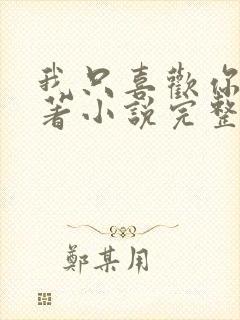 我只喜歡你
著小說完整
鄭某用